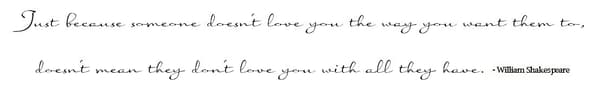 Just because someone doesn't love you the way you want them to,
doesn't mean they don't love you with all they have. - William Shakespeare